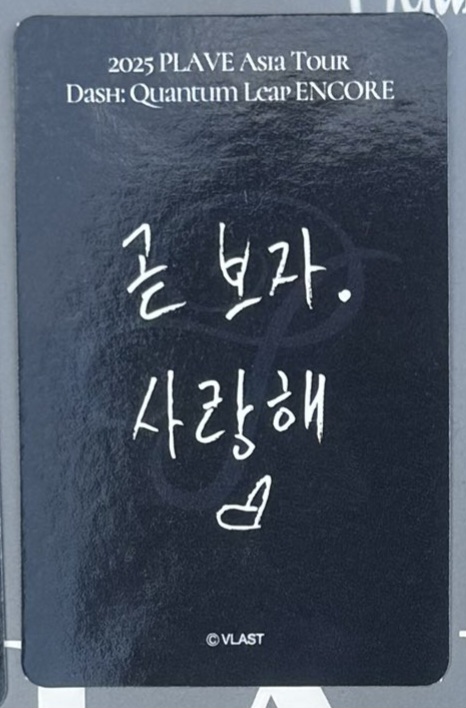 2025 PLAVE Asia Tour
Dash: Quantum Leap ENCORE
곧 보자.
사랑해
© VLAST